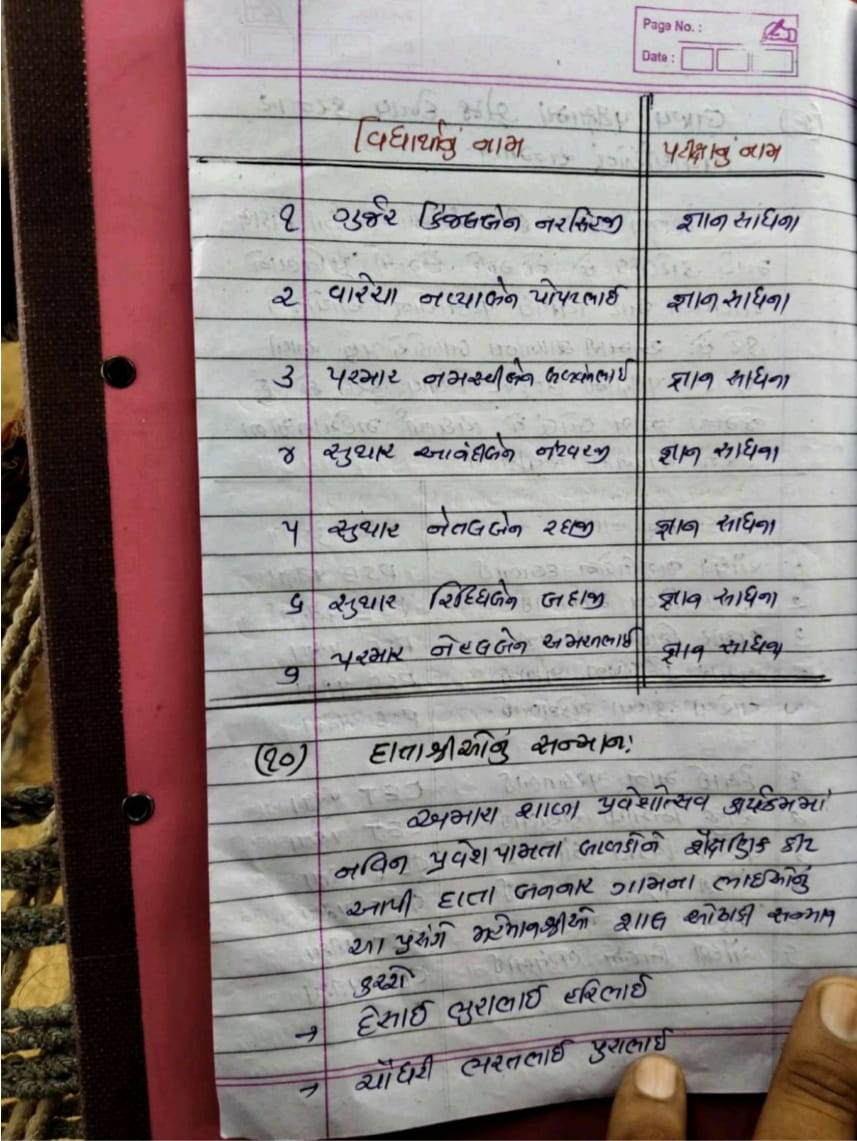 Page No. :
Date :
વિદ્યાર્થીનું નામ પરીક્ષાનું નામ
૧ ગુર્જર કિંજલબેન નરસિંહજી જ્ઞાન સાધના
૨ વારેચા નવ્યાબેન પોપટભાઈ જ્ઞાન સાધના
૩ પરમાર નમસ્વીબેન જ્ઞાન સાધના
૪ સુથાર આનંદીબેન નટવરજી જ્ઞાન સાધના
૫ સુથાર નેતલબેન રદાજી જ્ઞાન સાધના
૬ સુથાર રિધ્ધિબેન બદાજી જ્ઞાન સાધના
૭ પરમાર નેહલબેન અમરતભાઈ જ્ઞાન સાધના
(૧૦) દાતાશ્રીઓનું સન્માન:
અમારા શાળા પ્રવેશોત્સવ કાર્યક્રમમાં
નવિન પ્રવેશ પામતા બાળકોને શૈક્ષણિક કીટ
આપી દાતા બનનાર ગામના ભાઈઓનું
આ પ્રસંગે મહેમાનશ્રીઓ શાલ ઓઢાડી સન્માન
કરશે
→ દેસાઈ ભુરાભાઈ હરિભાઈ
→ ચૌધરી ભરતભાઈ પુરાભાઈ